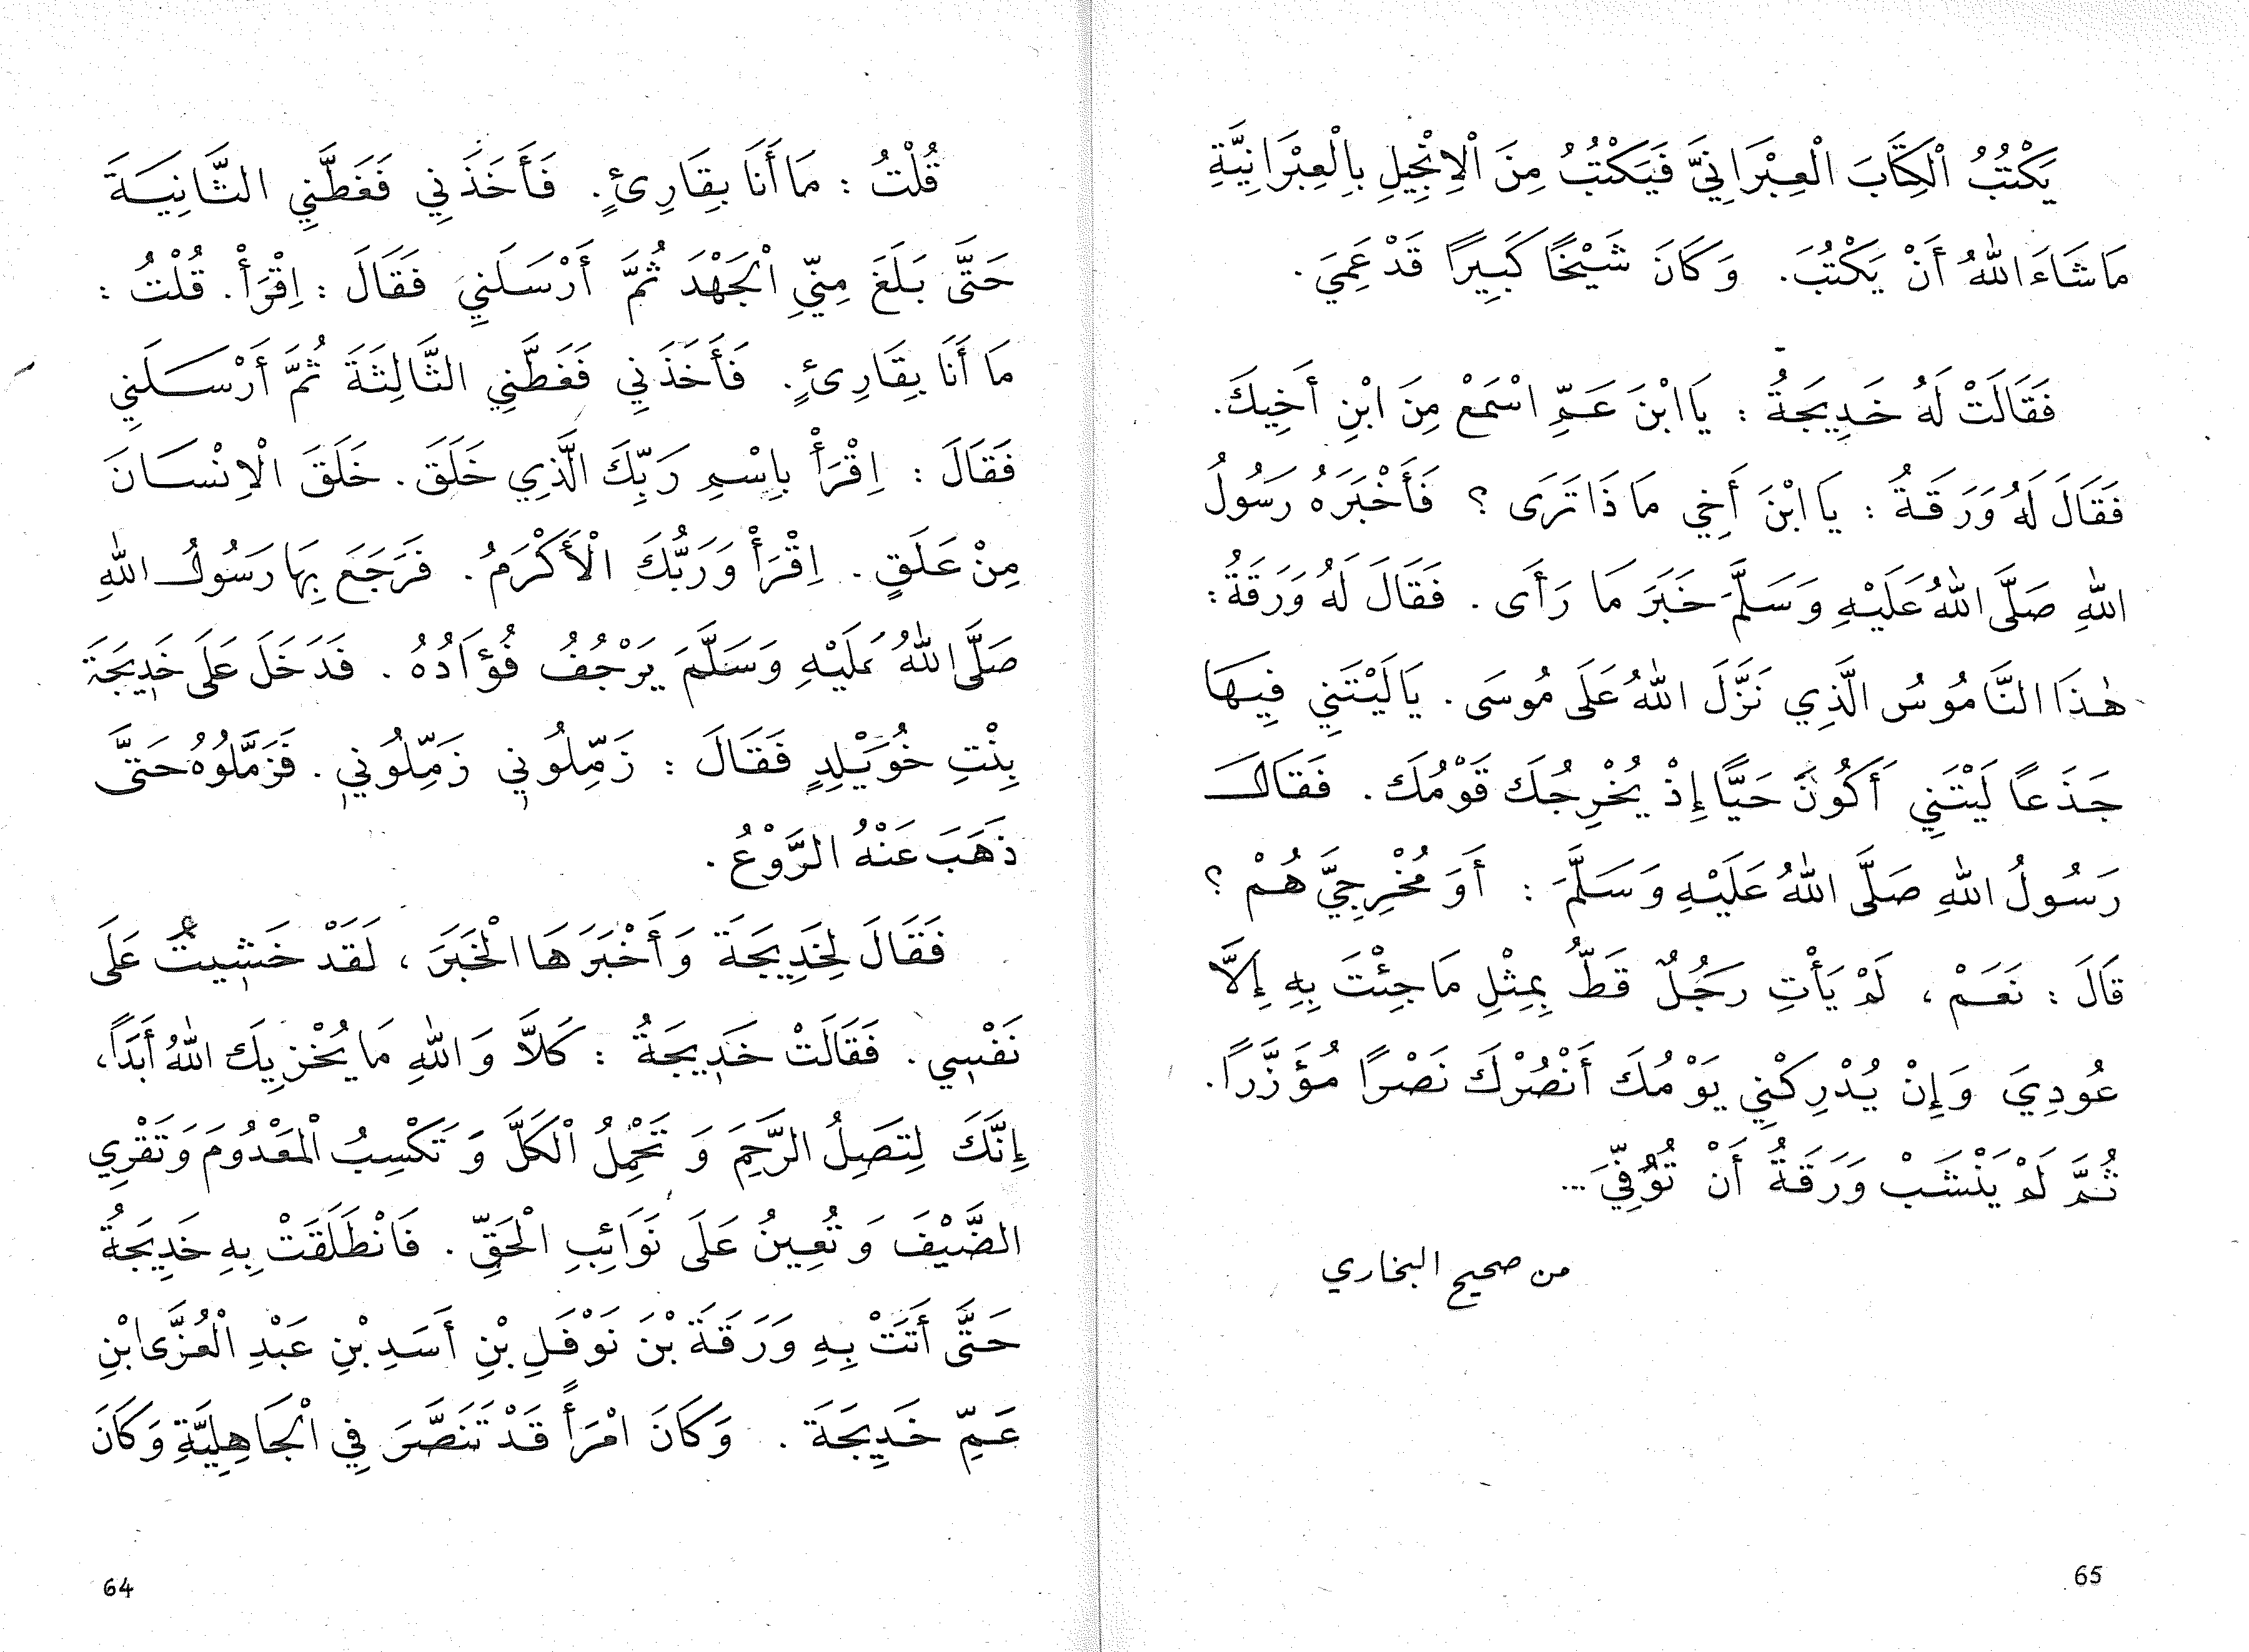 قُلْتُ : مَا أَنَا بِقَارِئٍ. فَأَخَذَنِي فَغَطَّنِي الثَّانِيَةَ
حَتَّى بَلَغَ مِنِّي الْجَهْدَ ثُمَّ أَرْسَلَنِي فَقَالَ : اِقْرَأْ. قُلْتُ :
مَا أَنَا بِقَارِئٍ. فَأَخَذَنِي فَغَطَّنِي الثَّالِثَةَ ثُمَّ أَرْسَلَنِي
فَقَالَ : اِقْرَأْ بِاِسْمِ رَبِّكَ الَّذِي خَلَقَ. خَلَقَ الْاِنْسَانَ
مِنْ عَلَقٍ. اِقْرَأْ وَرَبُّكَ الْأَكْرَمُ. فَرَجَعَ بِهَا رَسُولُ اللهِ
صَلَّى اللهُ عَلَيْهِ وَسَلَّمَ يَرْجُفُ فُؤَادُهُ. فَدَخَلَ عَلَى خَدِيجَةَ
بِنْتِ خُوَيْلِدٍ فَقَالَ : زَمِّلُونِي زَمِّلُونِي. فَزَمَّلُوهُ حَتَّى
ذَهَبَ عَنْهُ الرَّوْعُ.
فَقَالَ لِخَدِيجَةَ وَأَخْبَرَهَا الْخَبَرَ، لَقَدْ خَشِيتُ عَلَى
نَفْسِي. فَقَالَتْ خَدِيجَةُ : كَلَّا وَاللهِ مَا يُخْزِيكَ اللهُ أَبَدًا،
إِنَّكَ لِتَصِلُ الرَّحِمَ وَتَحْمِلُ الْكَلَّ وَتَكْسِبُ الْمَعْدُومَ وَتَقْرِي
الضَّيْفَ وَتُعِينُ عَلَى نَوَائِبِ الْحَقِّ. فَانْطَلَقَتْ بِهِ خَدِيجَةُ
حَتَّى أَتَتْ بِهِ وَرَقَةَ بْنَ نَوْفَلِ بْنِ أَسَدِ بْنِ عَبْدِ الْعُزَّى ابْنِ
عَمِّ خَدِيجَةَ. وَكَانَ امْرَأً قَدْ تَنَصَّرَ فِي الْجَاهِلِيَّةِ وَكَانَ
64
يَكْتُبُ الْكِتَابَ الْعِبْرَانِيَّ فَيَكْتُبُ مِنَ الْاِنْجِيلِ بِالْعِبْرَانِيَّةِ
مَا شَاءَ اللهُ أَنْ يَكْتُبَ. وَكَانَ شَيْخًا كَبِيرًا قَدْ عَمِيَ.
فَقَالَتْ لَهُ خَدِيجَةُ : يَا ابْنَ عَمِّ اسْمَعْ مِنَ ابْنِ أَخِيكَ.
فَقَالَ لَهُ وَرَقَةُ : يَا ابْنَ أَخِي مَاذَا تَرَى ؟ فَأَخْبَرَهُ رَسُولُ
اللهِ صَلَّى اللهُ عَلَيْهِ وَسَلَّمَ خَبَرَ مَا رَأَى. فَقَالَ لَهُ وَرَقَةُ :
هٰذَا النَّامُوسُ الَّذِي نَزَّلَ اللهُ عَلَى مُوسَى. يَا لَيْتَنِي فِيهَا
جَذَعًا لَيْتَنِي أَكُونُ حَيًّا إِذْ يُخْرِجُكَ قَوْمُكَ. فَقَالَ
رَسُولُ اللهِ صَلَّى اللهُ عَلَيْهِ وَسَلَّمَ : أَوَ مُخْرِجِيَّ هُمْ ؟
قَالَ : نَعَمْ، لَمْ يَأْتِ رَجُلٌ قَطُّ بِمِثْلِ مَا جِئْتَ بِهِ إِلَّا
عُودِيَ وَإِنْ يُدْرِكْنِي يَوْمُكَ أَنْصُرْكَ نَصْرًا مُؤَزَّرًا.
ثُمَّ لَمْ يَنْشَبْ وَرَقَةُ أَنْ تُوُفِّيَ...
من صحيح البخاري
65